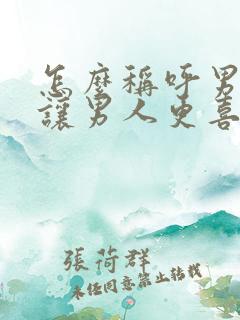 怎麼稱呼男
讓男人更喜
張荷群
未經同意禁止轉載